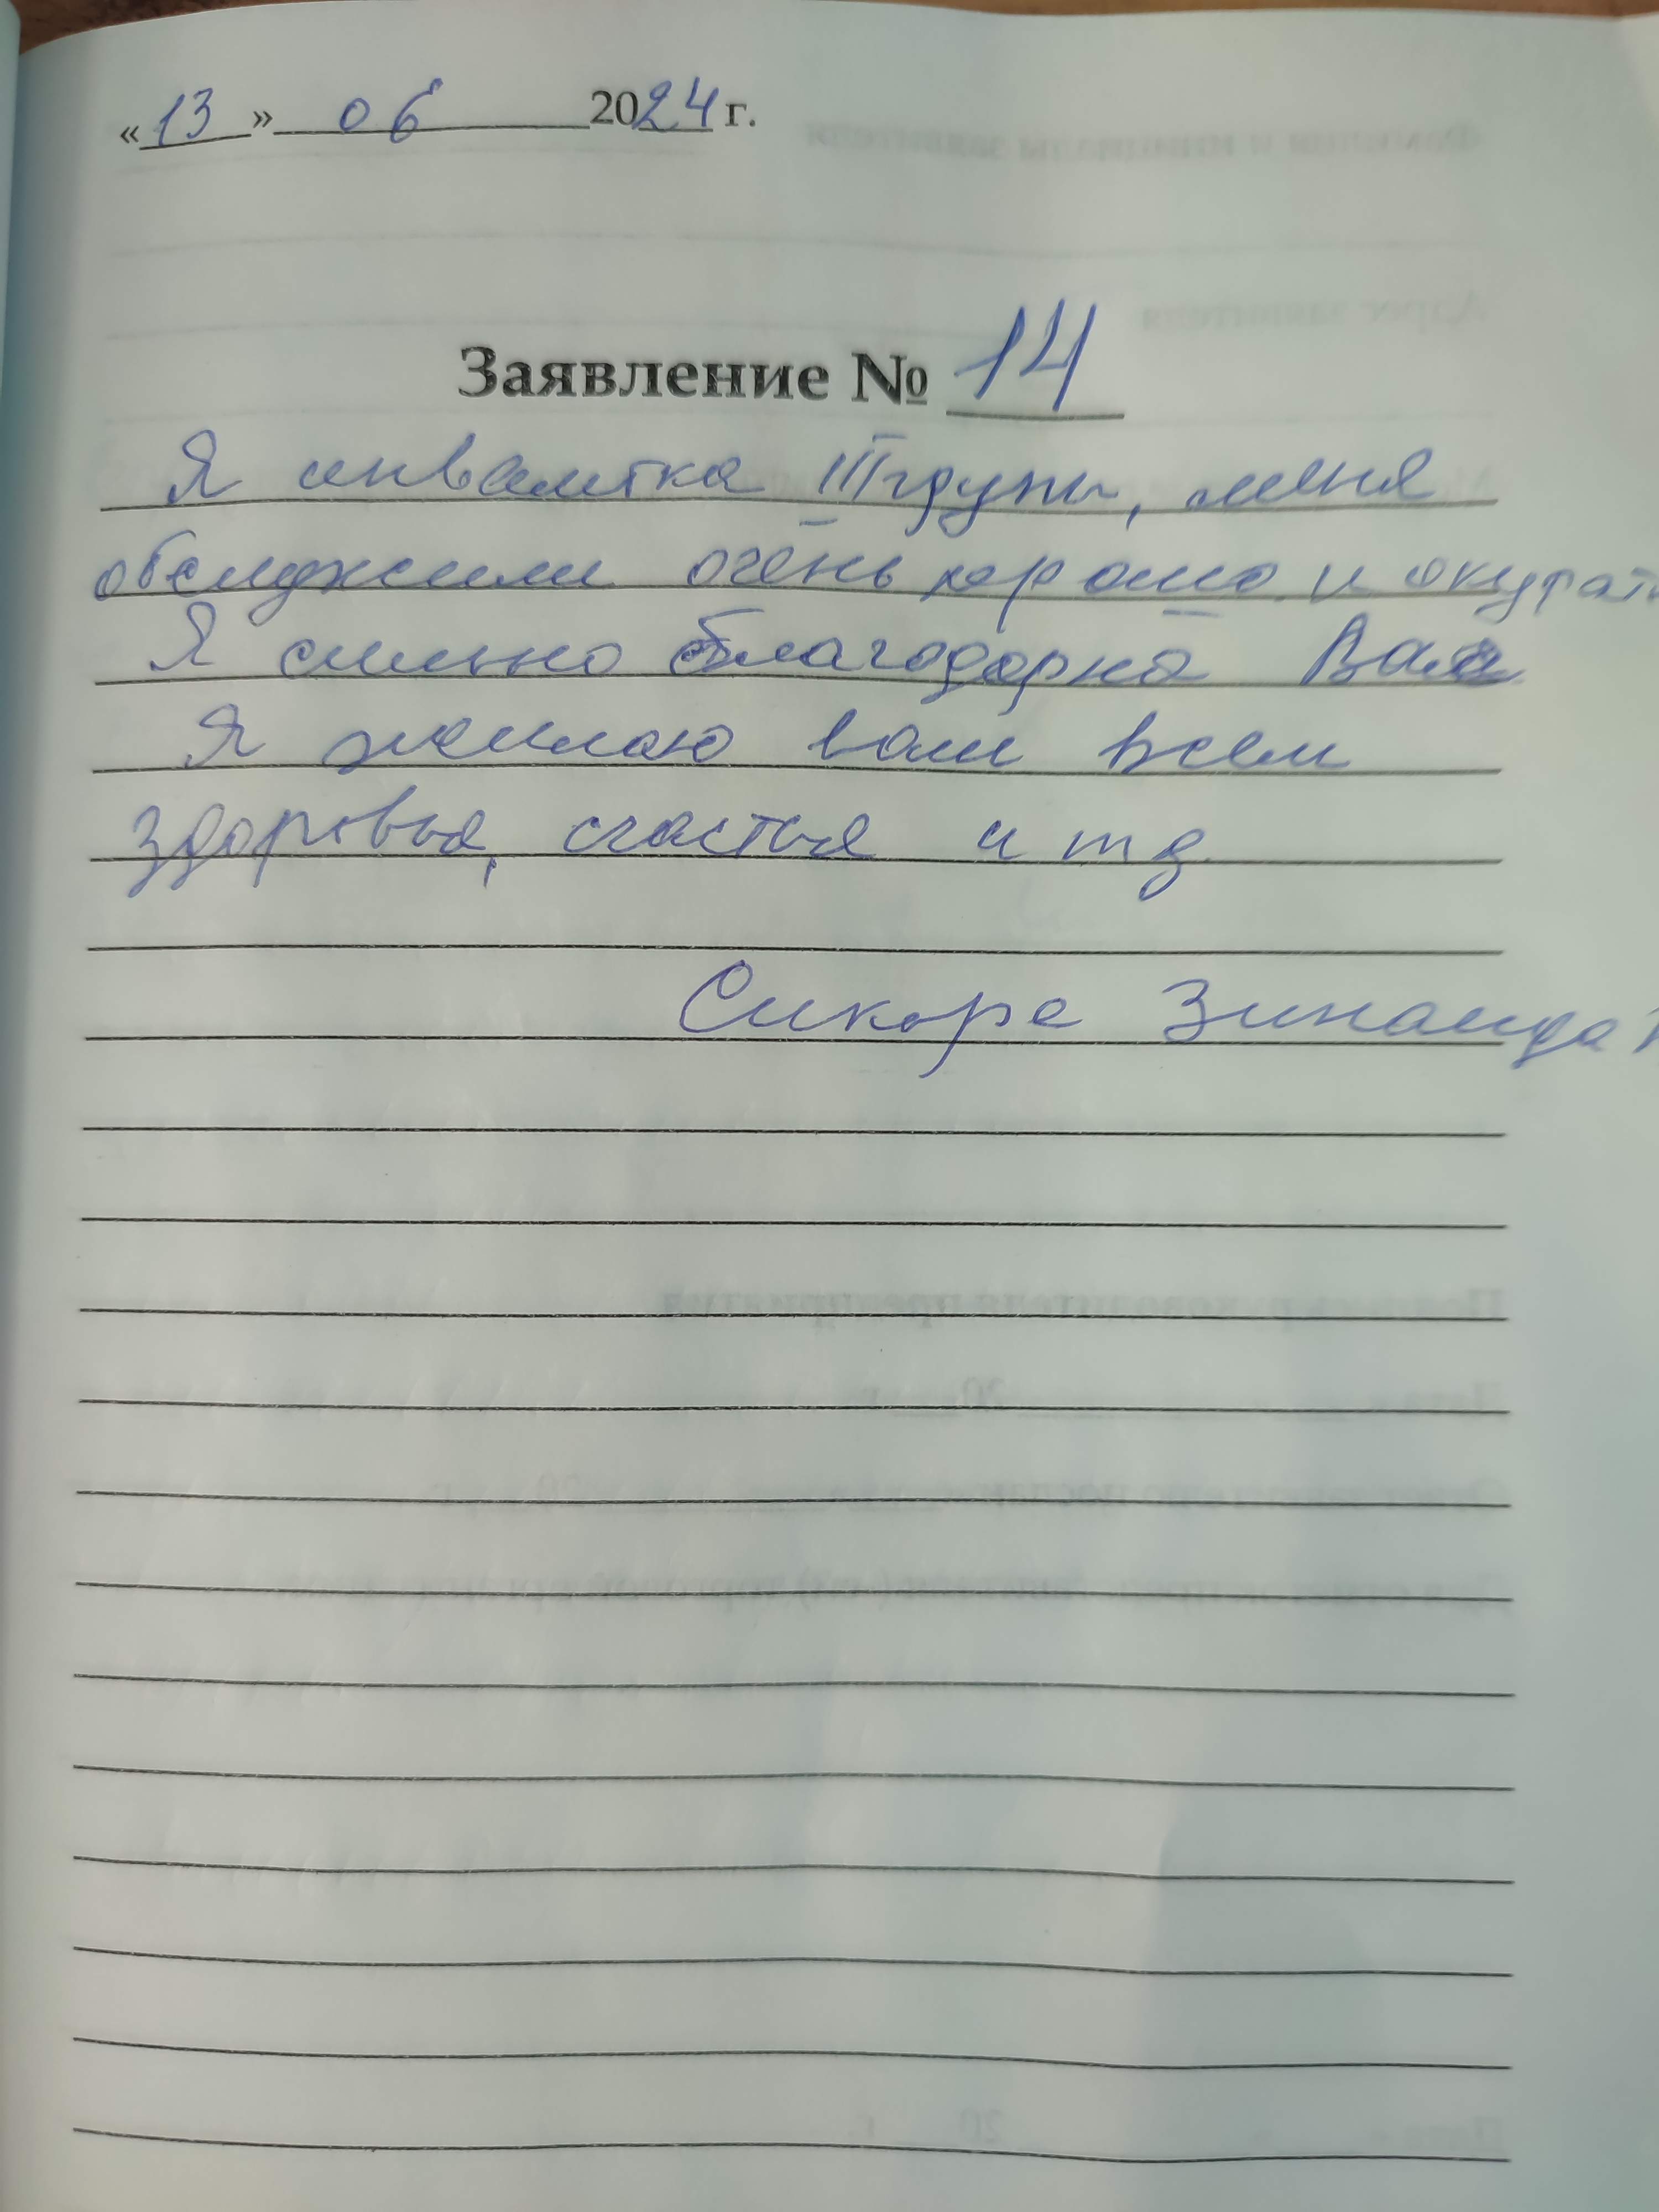 «13» 06 2024 г.
Заявление № 14
Я инвалитка III групы, меня
обслужили очень хорошо и окурат
Я сильно благодарна Вам
Я желаю вам всем
здоровья, счастья и т д
Сикора Зинаида